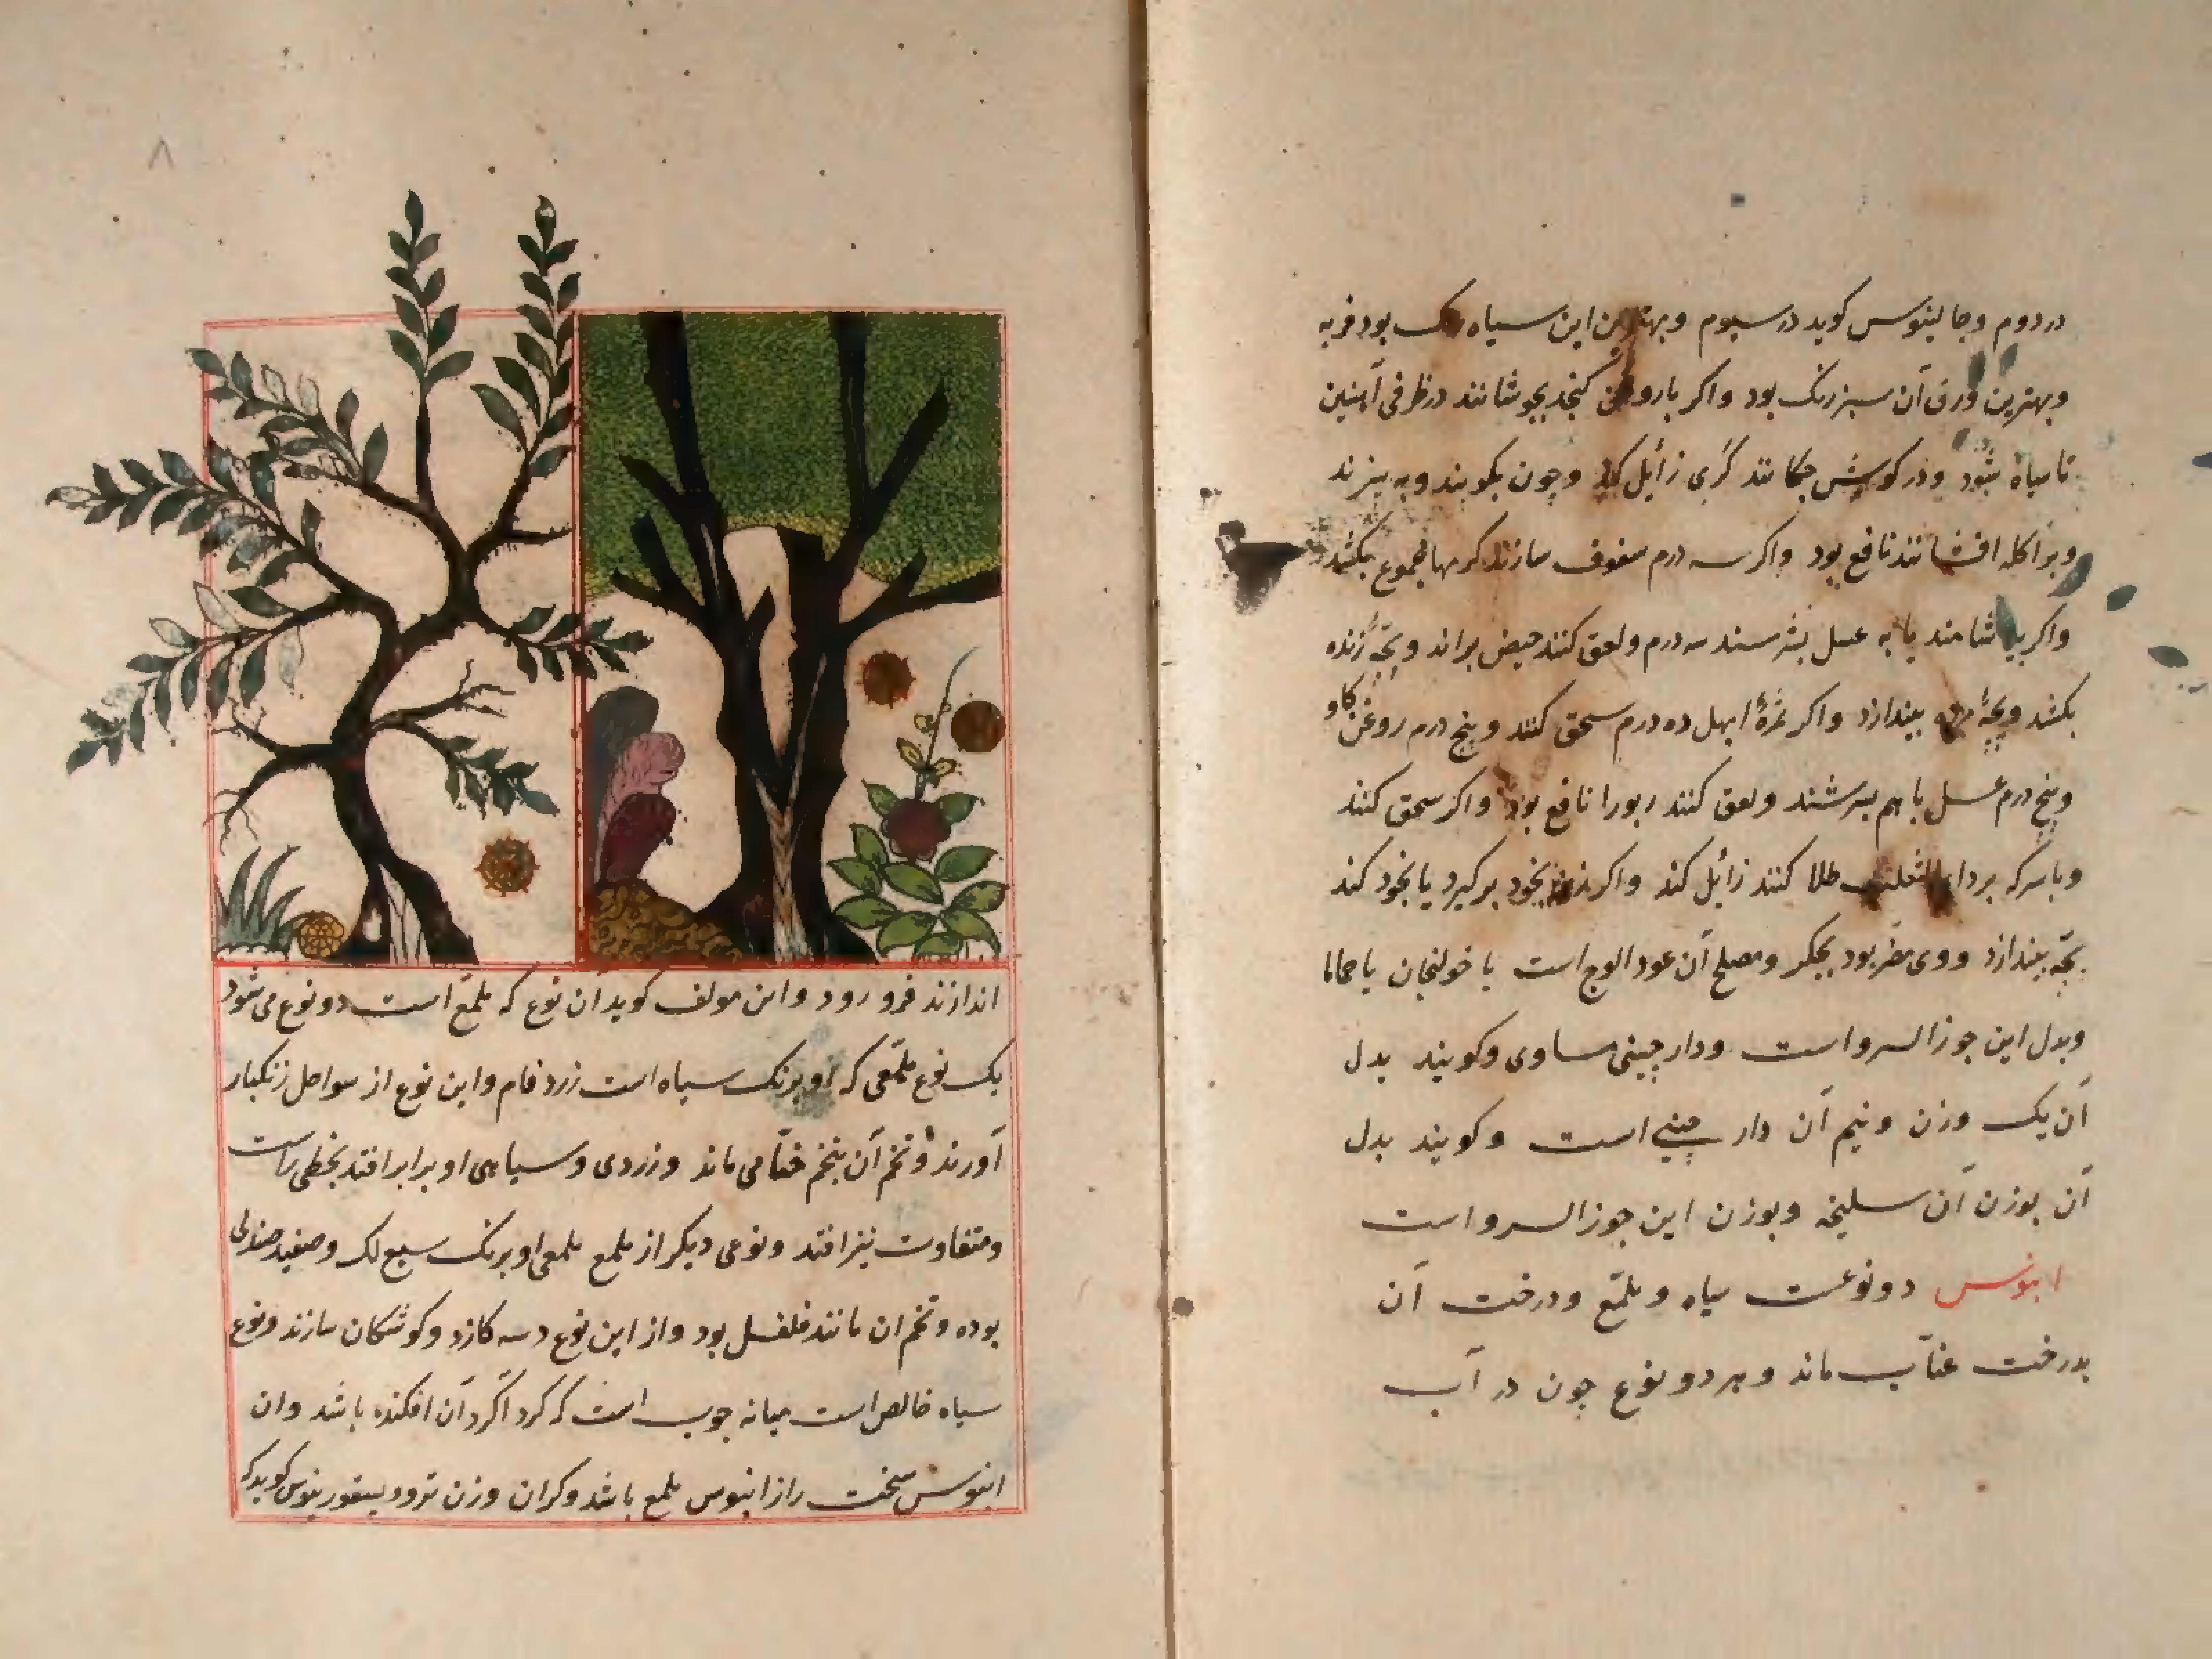 در دوم و جالینوس کوید در سیوم و بهترین این سیاه رنک بود فربه
و بهترین ورق آن سبز رنک بود و اکر با روغن کنجد بجوشانند در ظرفی آهنین
تا سیاه شود و در کوش چکانند کری زائل کند و چون بکوبند و به بیزند
و بر اکله افشانند نافع بود و اکر سه درم سفوف سازند کرمها مجموع بکشد
و اکر بیاشامند یا به عسل بسرشند سه درم و لعق کنند حیض براند و بچه زنده
بکشد و بچه مرده بیندازد و اکر ثمرهٔ ابهل ده درم سحق کنند و پنج درم روغن کاو
و پنج درم عسل با هم بسرشند و لعق کنند ربو را نافع بود و اکر سحق کنند
و با سرکه بر داء الثعلب طلا کنند زائل کند و اکر زن بخود برکیرد یا بخود کند
بچه بیندازد و وی مضر بود بجکر و مصلح آن عود الوج است یا خولنجان یا حماما
و بدل این جوز السرو است و دارچینی مساوی و کویند بدل
آن یک وزن و نیم آن دار چینی است و کویند بدل
آن بوزن آن سلیخه و بوزن این جوز السرو است
ابنوس دو نوعست سیاه و ملمّع و درخت آن
بدرخت عنّاب ماند و هر دو نوع چون در آب
۸
اندازند فرو رود و این مولف کوید آن نوع که ملمّع است دو نوع می شود
یک نوع ملمّعی که او برنک سیاه است زرد فام و این نوع از سواحل زنکبار
آورند و تخم آن بتخم حنّا می ماند و زردی و سیاهی او برابر افتد بخطی راست
و متفاوت نیز افتد و نوعی دیکر از ملمع ملمعی او برنک سبع لک و صفید صندلی
بوده و تخم ان مانند فلفل بود و از این نوع دسه کازد و کوشکان سازند و نوع
سیاه خالص است میانه چوب است که کرد آکرد آن افکنده باشد و ان
ابنوس سخت راز ابنوس ملمع باشد و کران وزن تر و دیسقوریدوس کوید که